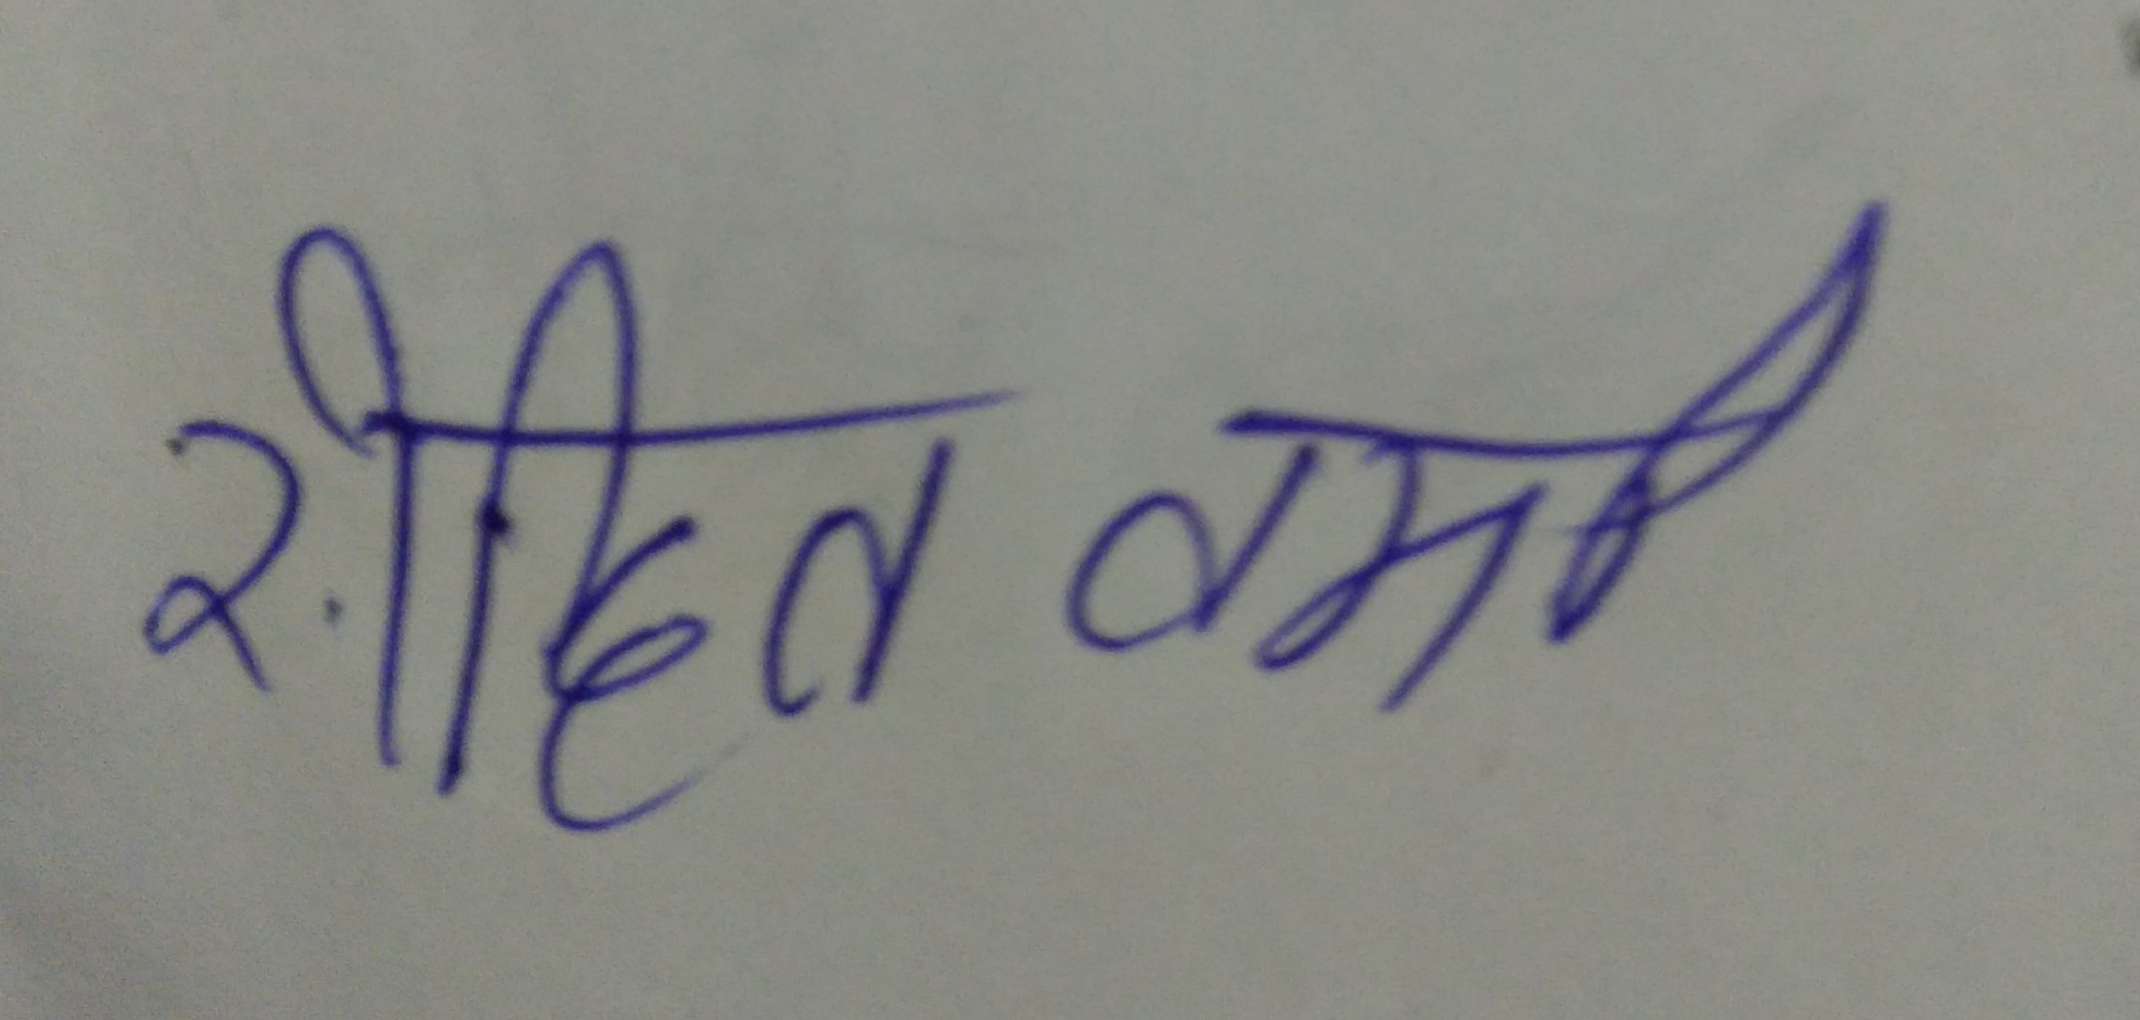 रोहित वर्मा